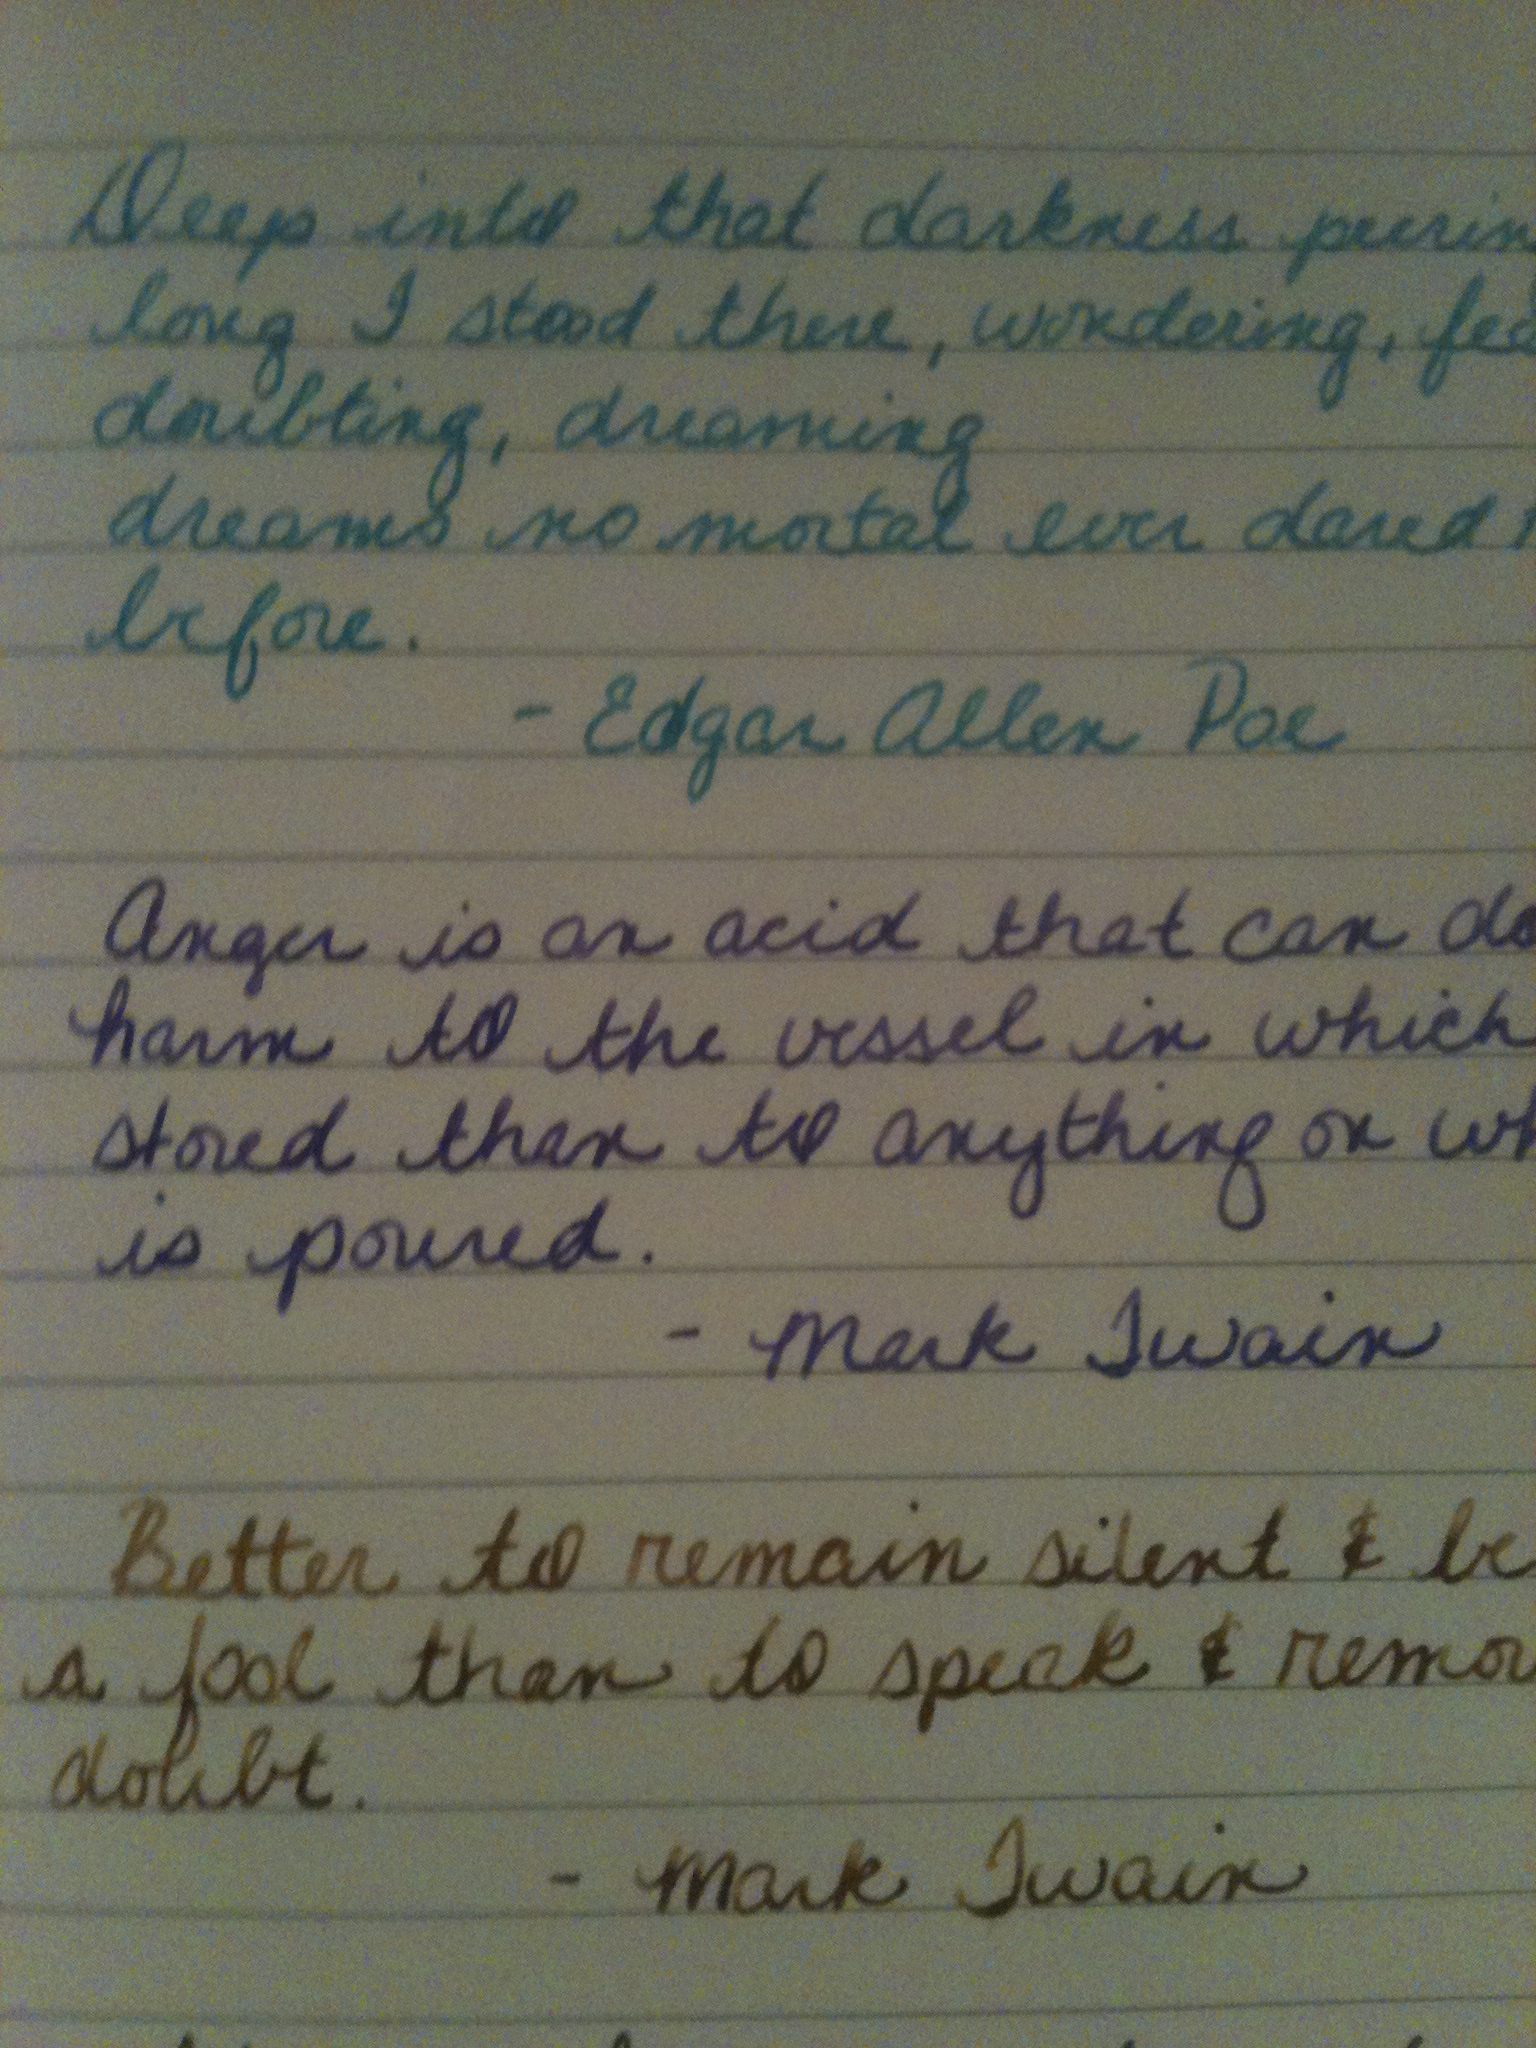 Deep into that darkness peerin
long I stood there, wondering, fea
doubting, dreaming
dreams no mortal ever dared
before.
- Edgar Allen Poe
Anger is an acid that can do
harm to the vessel in which
stored than to anything on wh
is poured.
- Mark Twain
Better to remain silent & be
a fool than to speak & remov
doubt.
- Mark Twain